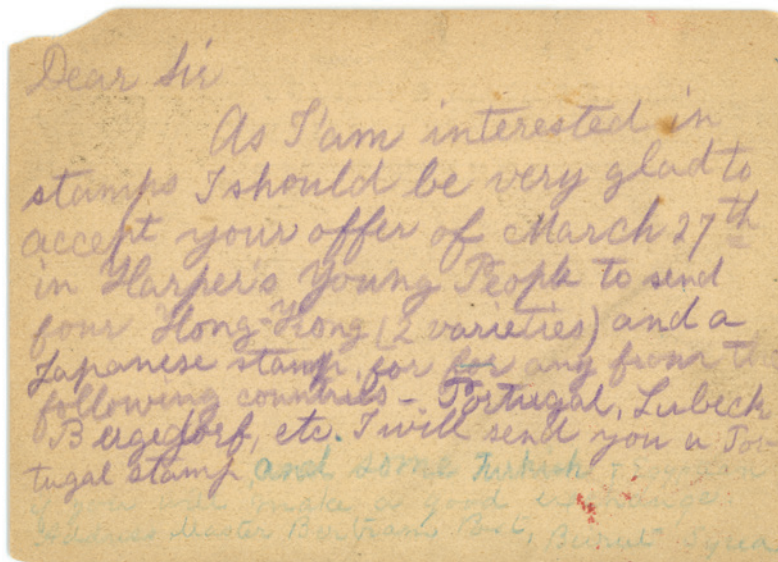 Dear Sir
As I'am interested in
stamps I should be very glad to
accept your offer of March 27th
in Harper's Young People to send
four Hong-Kong (2 varieties) and a
Japanese stamp, for for any from the
following countries - Portugal, Lubeck
Bergedorf, etc. I will send you a Por-
tugal stamp and some Turkish
if you will make a good exchange.
Address Master Bertram Post, Beirut Syria